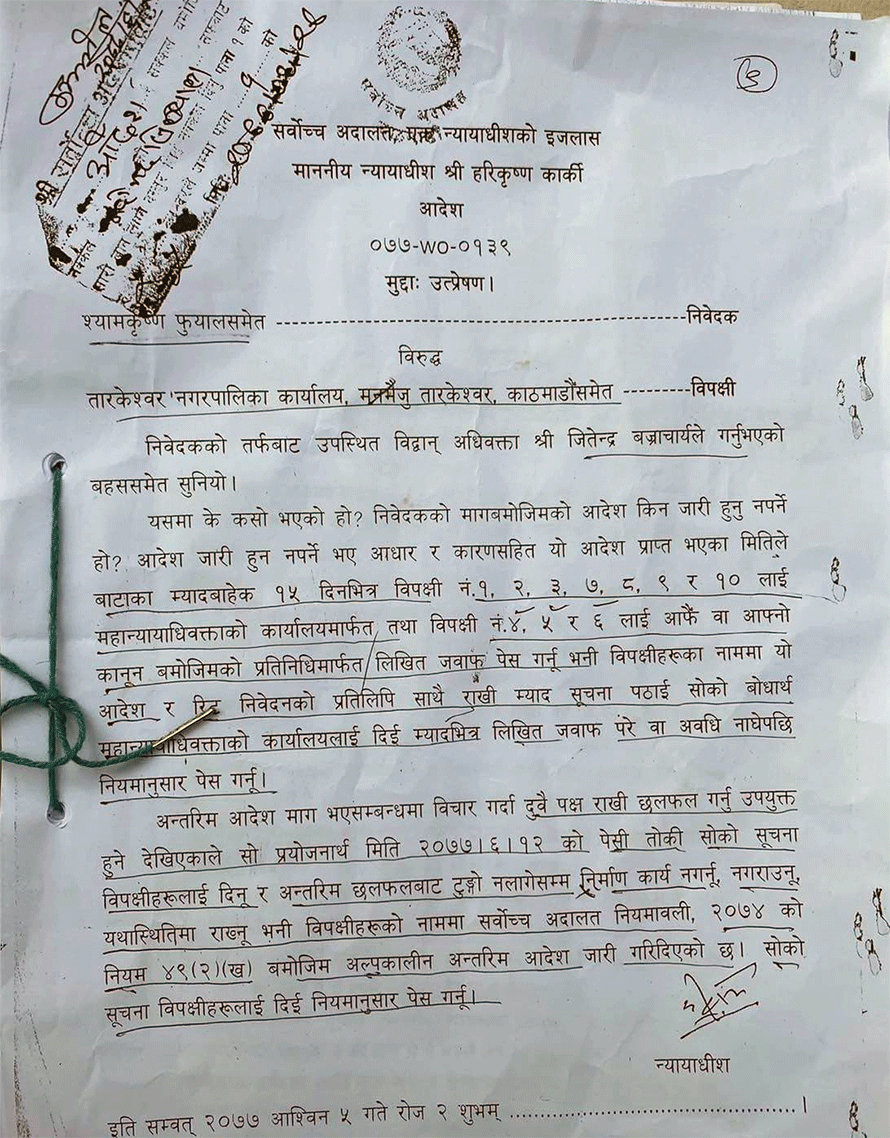 सर्वोच्च अदालत
सर्वोच्च अदालत, एक न्यायाधीशको इजलास
माननीय न्यायाधीश श्री हरिकृष्ण कार्की
आदेश
०७७-WO-०१३९
मुद्दाः उत्प्रेषण।
श्यामकृष्ण फुयालसमेत ------------------------------------------------निवेदक
विरुद्ध
तारकेश्वर नगरपालिका कार्यालय, मनमैजु तारकेश्वर, काठमाडौंसमेत ---------विपक्षी
निवेदकको तर्फबाट उपस्थित विद्वान् अधिवक्ता श्री जितेन्द्र बज्राचार्यले गर्नुभएको
बहससमेत सुनियो।
यसमा के कसो भएको हो? निवेदकको मागबमोजिमको आदेश किन जारी हुनु नपर्ने
हो? आदेश जारी हुन नपर्ने भए आधार र कारणसहित यो आदेश प्राप्त भएका मितिले
बाटाका म्यादबाहेक १५ दिनभित्र विपक्षी नं.१, २, ३, ७, ८, ९ र १० लाई
महान्यायाधिवक्ताको कार्यालयमार्फत तथा विपक्षी नं.४, ५ र ६ लाई आफैं वा आफ्नो
कानून बमोजिमको प्रतिनिधिमार्फत लिखित जवाफ पेस गर्नू भनी विपक्षीहरूका नाममा यो
आदेश र रिट निवेदनको प्रतिलिपि साथै राखी म्याद सूचना पठाई सोको बोधार्थ
महान्यायाधिवक्ताको कार्यालयलाई दिई म्यादभित्र लिखित जवाफ परे वा अवधि नाघेपछि
नियमानुसार पेस गर्नू।
अन्तरिम आदेश माग भएसम्बन्धमा विचार गर्दा दुवै पक्ष राखी छलफल गर्नु उपयुक्त
हुने देखिएकाले सो प्रयोजनार्थ मिति २०७७।६।१२ को पेसी तोकी सोको सूचना
विपक्षीहरूलाई दिनू र अन्तरिम छलफलबाट टुङ्गो नलागेसम्म निर्माण कार्य नगर्नू, नगराउनू,
यथास्थितिमा राख्नू भनी विपक्षीहरूको नाममा सर्वोच्च अदालत नियमावली, २०७४ को
नियम ४९(२)(ख) बमोजिम अल्पकालीन अन्तरिम आदेश जारी गरिदिएको छ। सोको
सूचना विपक्षीहरूलाई दिई नियमानुसार पेस गर्नू।
न्यायाधीश
इति सम्वत् २०७७ आश्विन ५ गते रोज २ शुभम् ..........................................।